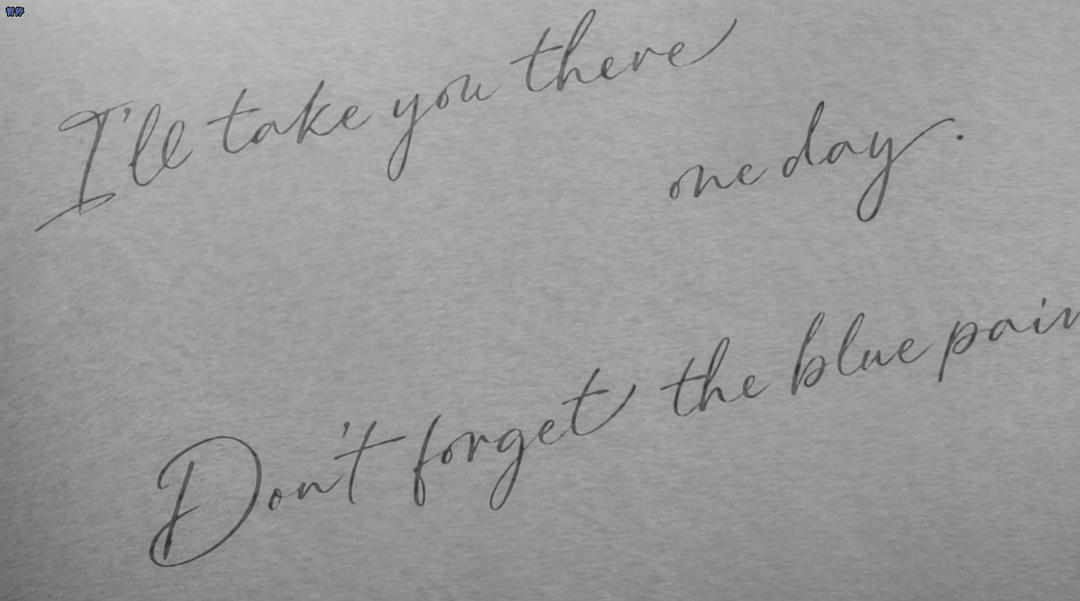 暂停
I'll take you there
one day.
Don't forget the blue